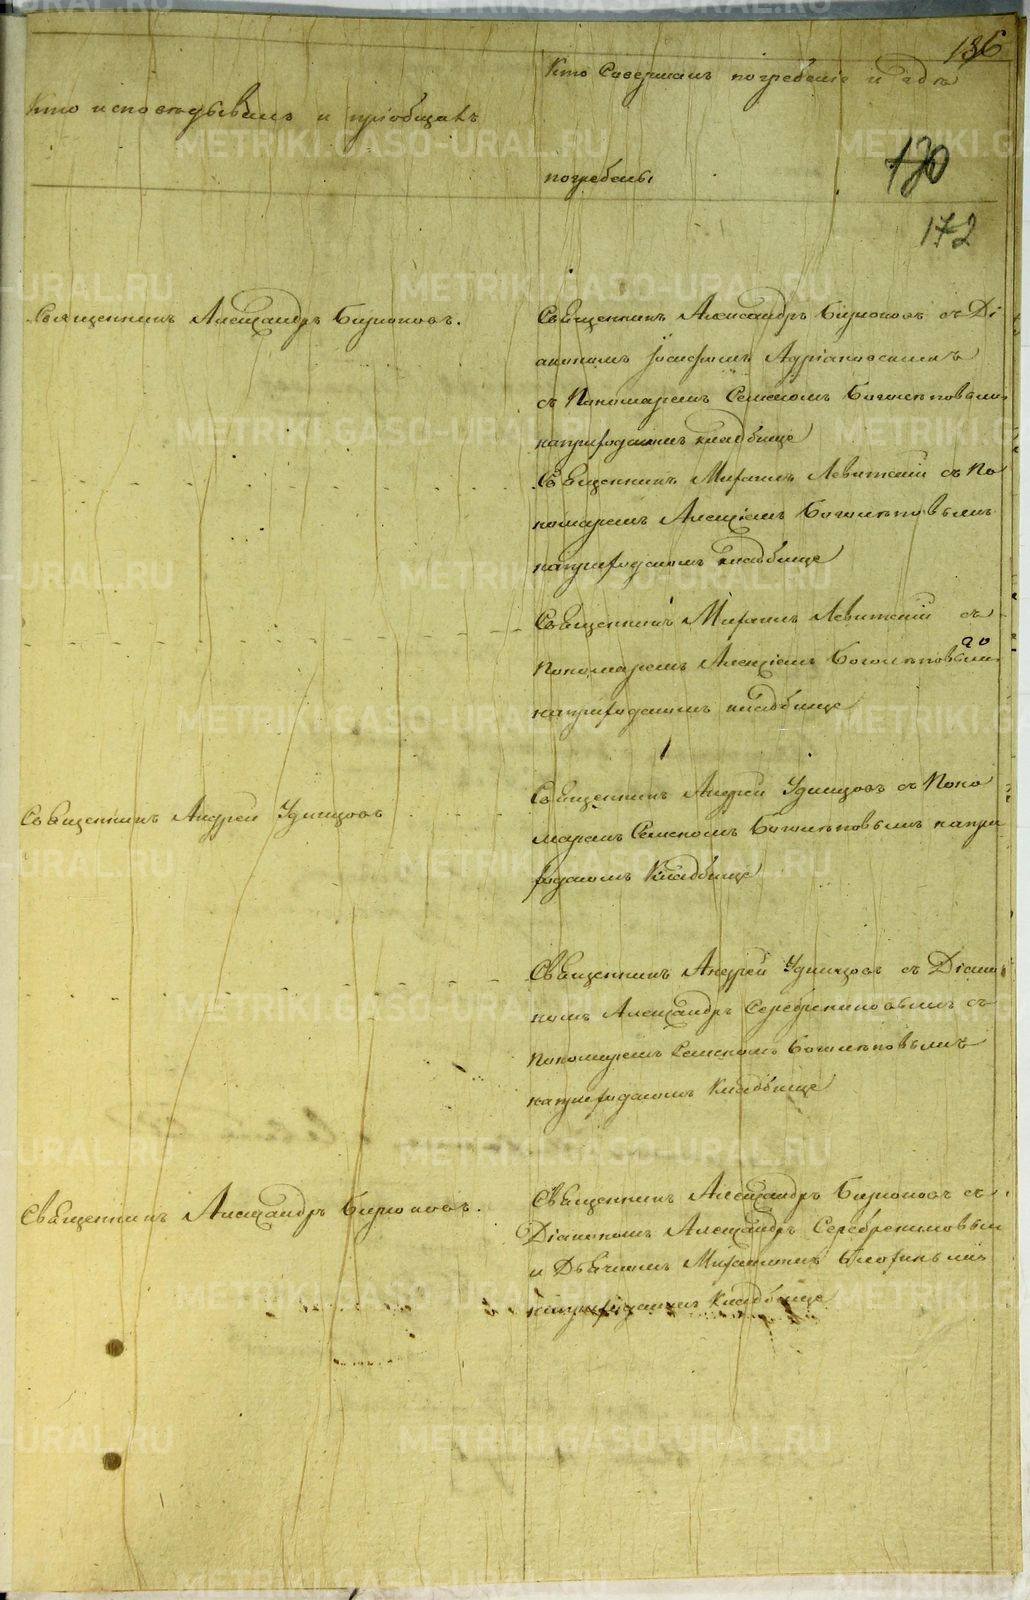 136
Кто исповѣдывалъ и пріобщалъ
Кто Совершалъ погребеніе и гдѣ
погребены
170
172
Священникъ Александръ Бирюковъ.
Священникъ Александръ Бирюковъ съ Ді
акономъ Іосифомъ Адріановскимъ
съ Пономаремъ Семеномъ Боголѣповымъ
наприходскомъ кладбище
Священникъ Михаилъ Левитскій съ По
номаремъ Алексіемъ Боголѣповымъ
наприходскомъ кладбище
Священникъ Михаилъ Левитскій съ
Пономаремъ Алексіемъ Боголѣповымъ
наприходскомъ кладбище
Священникъ Андрей Удинцовъ
Священникъ Андрей Удинцовъ съ Поно
маремъ Семеномъ Боголѣповымъ напри
ходскомъ Кладбище
Священникъ Андрей Удинцовъ съ Діако
номъ Александръ Серебрениковымъ съ
Пономаремъ Семеномъ Боголѣповымъ
наприходскомъ Кладбище
Священникъ Александръ Бирюковъ.
Священникъ Александръ Бирюковъ съ
Діакономъ Александръ Серебрениковым
и Дьячкомъ Михаиломъ
наприходскомъ Кладбище
METRIKI.GASO-URAL.RU